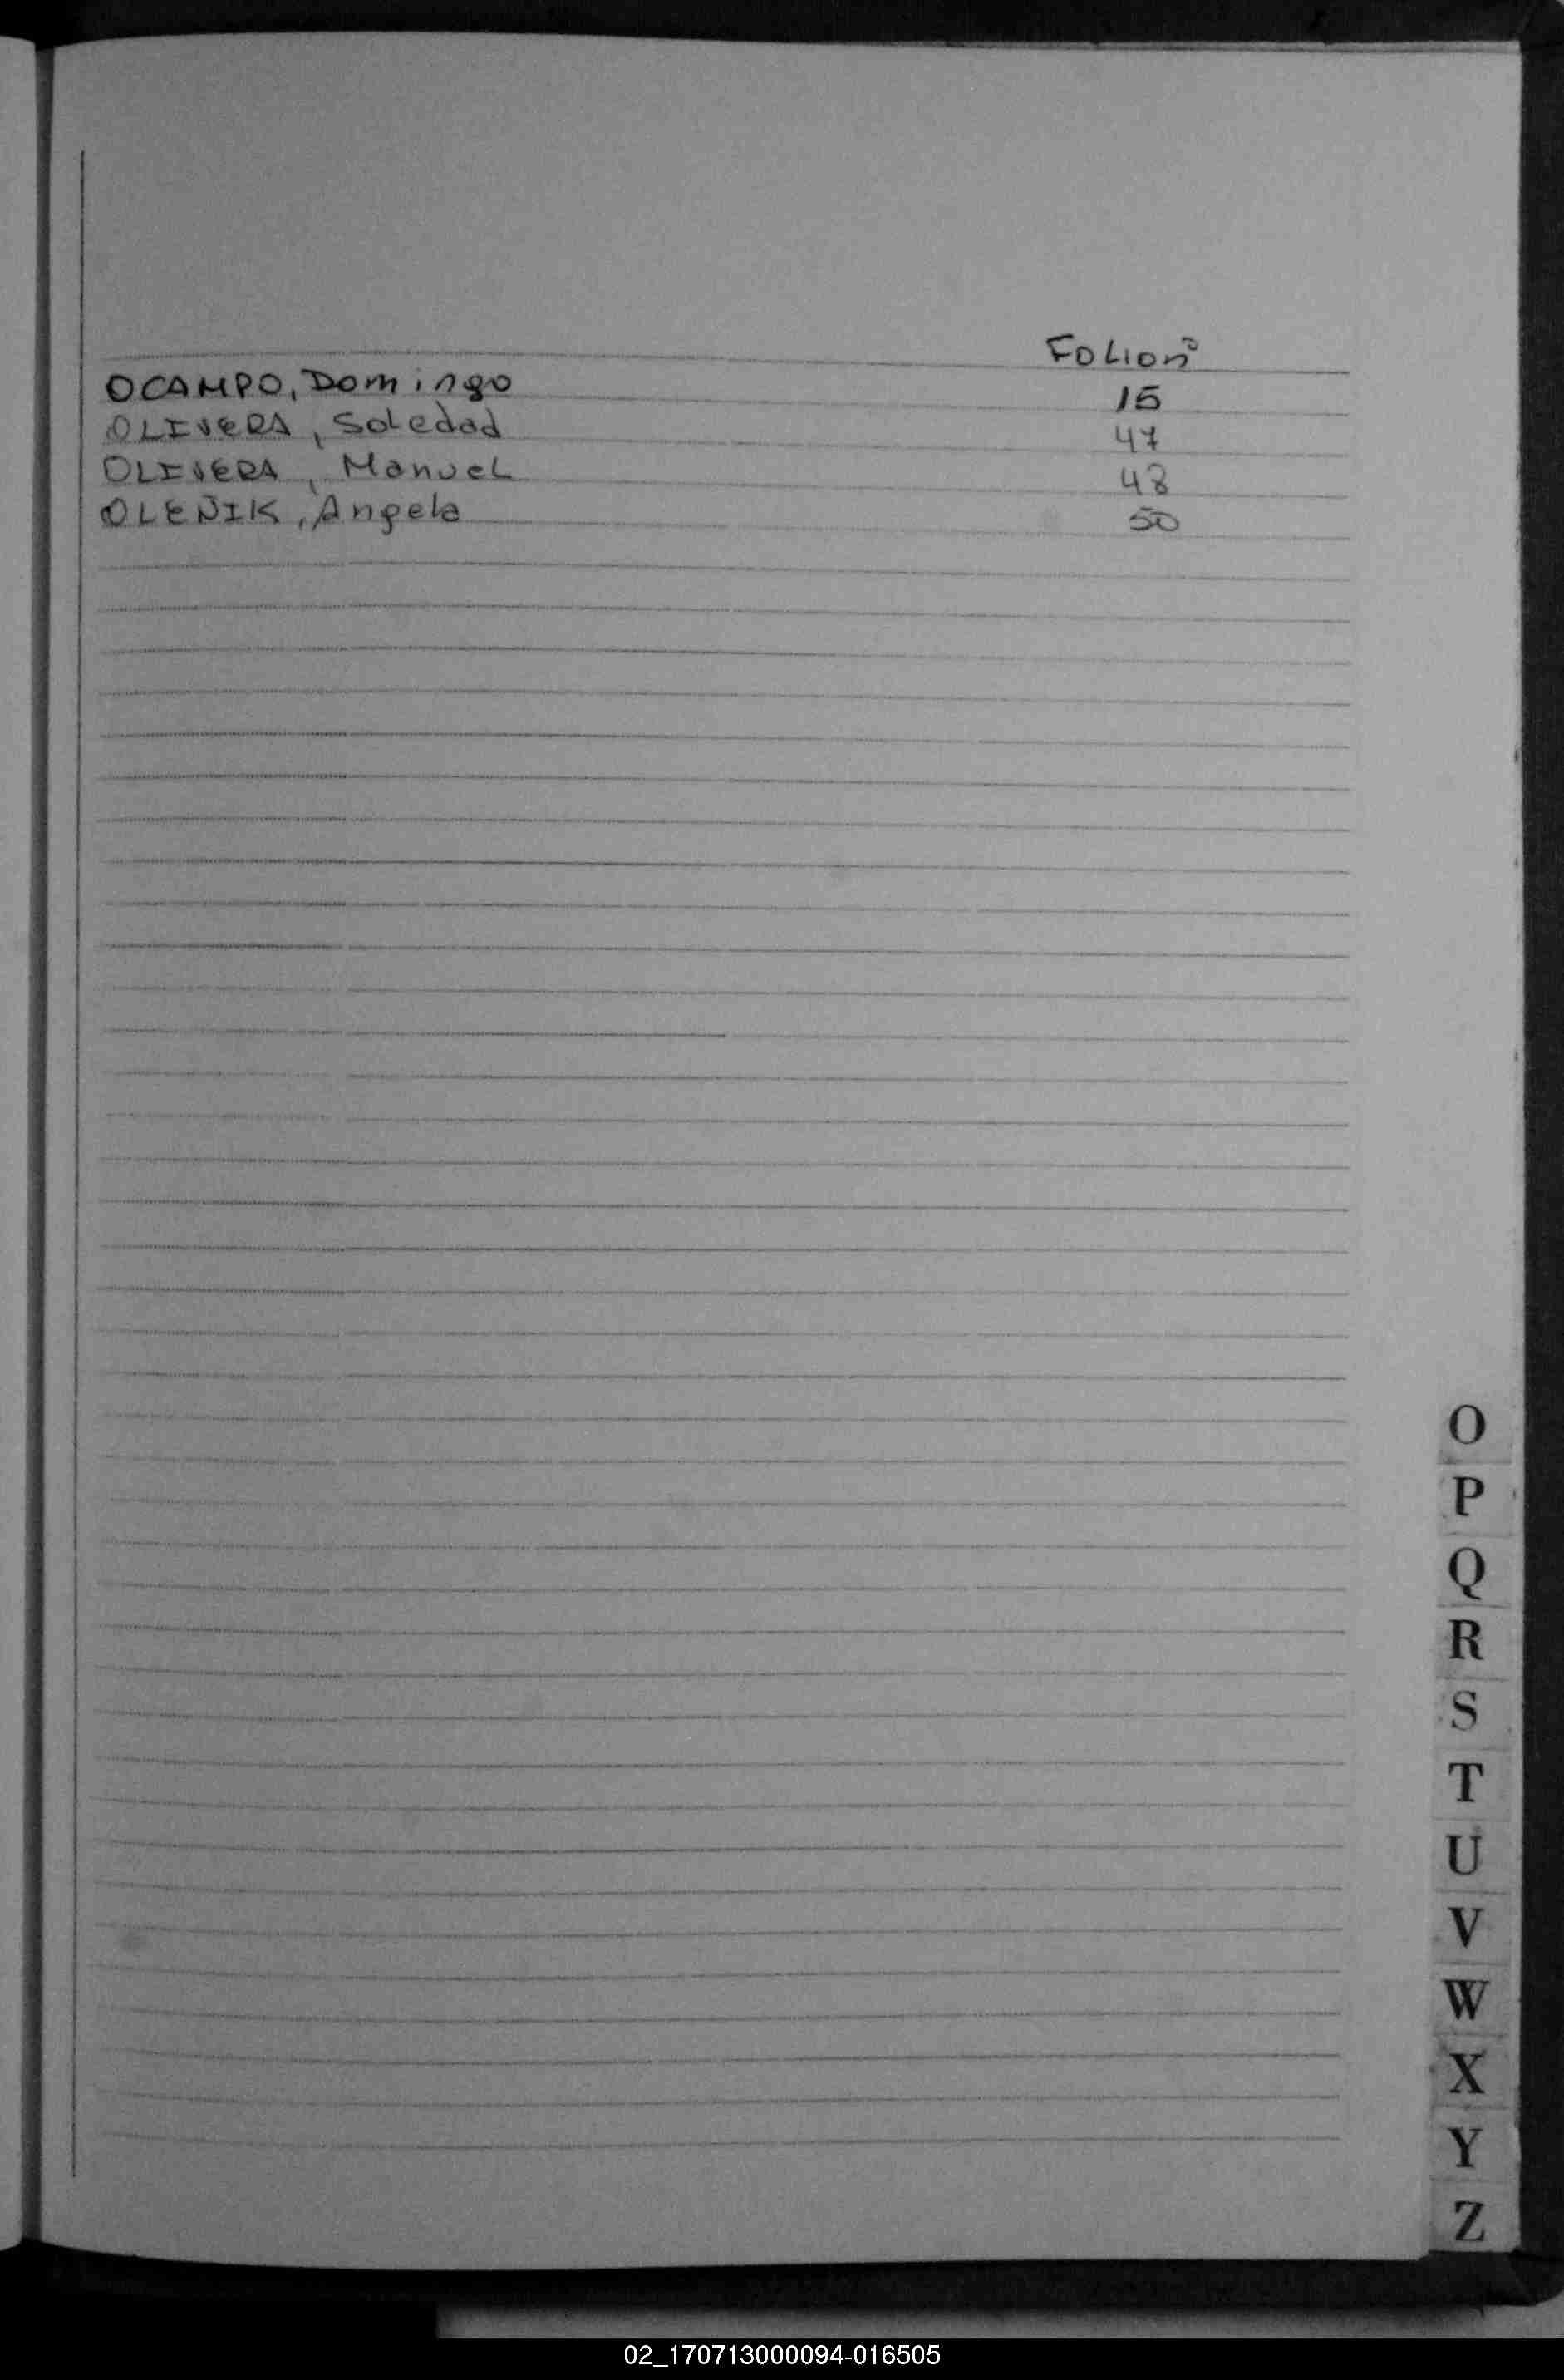 Folio nº
OCAMPO, Domingo 15
OLIVERA, Soledad 47
OLIVERA, Manuel 48
OLEÑIK, Angela 50
O
P
Q
R
S
T
U
V
W
X
Y
Z
02_170713000094-016505